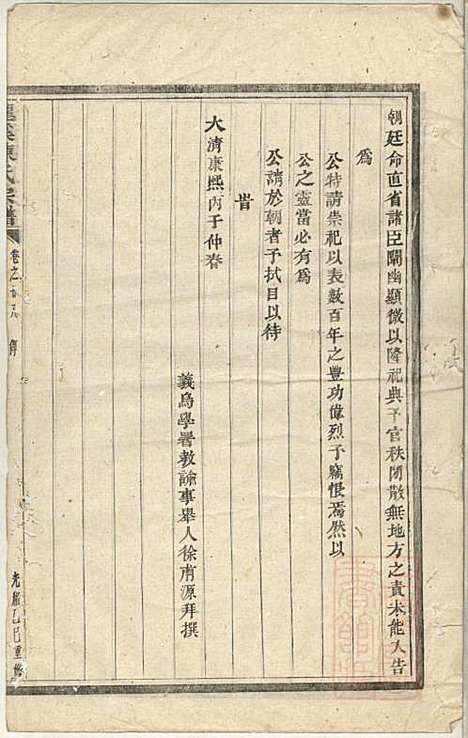 朝廷命直省諸臣闡幽顯微以隆祀典予官秩閒散無地方之責未能入告
爲
公特請崇祀以表數百年之豐功偉烈予竊恨焉然以
公之靈當必有爲
公請於朝者予拭目以待
旹
大清康熙丙子仲春
義烏學署教諭事舉人徐甫源拜撰
陳氏宗譜
卷之
傳
光緒乙巳重修